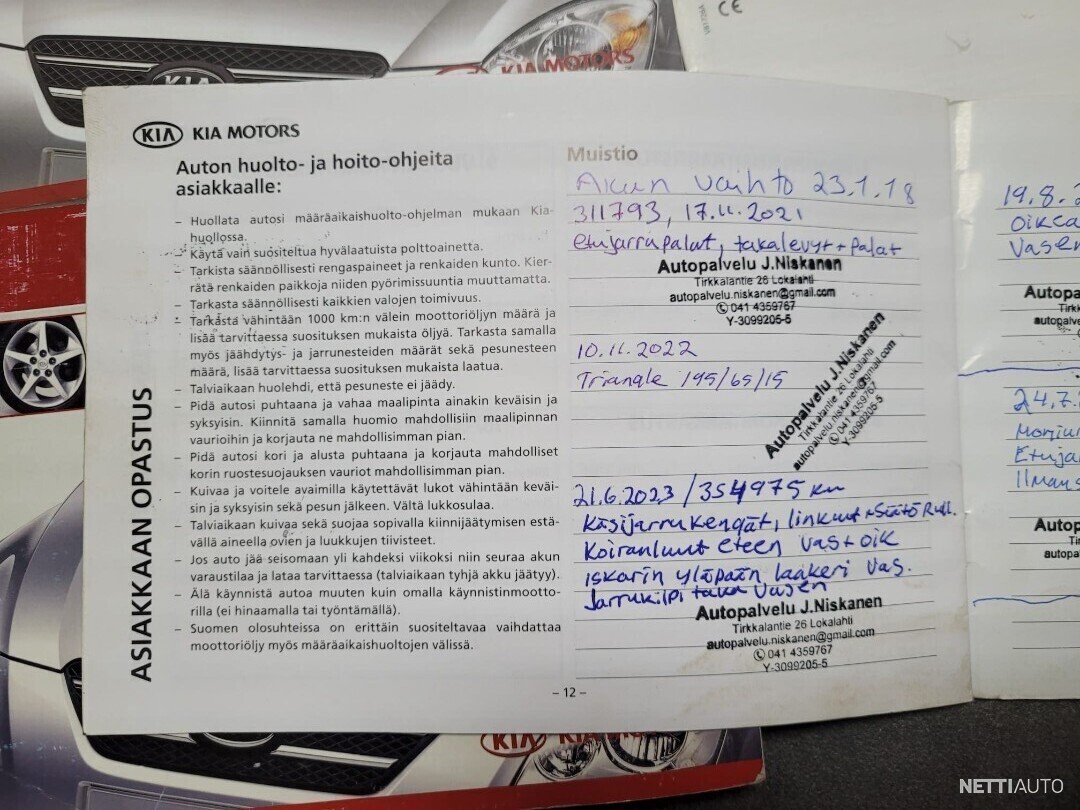 KIA MOTORS
KIA
CE
KIA KIA MOTORS
Auton huolto- ja hoito-ohjeita
asiakkaalle:
– Huollata autosi määräaikaishuolto-ohjelman mukaan Kia-
huollossa.
– Käytä vain suositeltua hyvälaatuista polttoainetta.
– Tarkista säännöllisesti rengaspaineet ja renkaiden kunto. Kier-
rätä renkaiden paikkoja niiden pyörimissuuntia muuttamatta.
– Tarkasta säännöllisesti kaikkien valojen toimivuus.
– Tarkasta vähintään 1000 km:n välein moottoriöljyn määrä ja
lisää tarvittaessa suosituksen mukaista öljyä. Tarkasta samalla
myös jäähdytys- ja jarrunesteiden määrät sekä pesunesteen
määrä, lisää tarvittaessa suosituksen mukaista laatua.
– Talviaikaan huolehdi, että pesuneste ei jäädy.
– Pidä autosi puhtaana ja vahaa maalipinta ainakin keväisin ja
syksyisin. Kiinnitä samalla huomio mahdollisiin maalipinnan
vaurioihin ja korjauta ne mahdollisimman pian.
– Pidä autosi kori ja alusta puhtaana ja korjauta mahdolliset
korin ruostesuojauksen vauriot mahdollisimman pian.
– Kuivaa ja voitele avaimilla käytettävät lukot vähintään keväi-
sin ja syksyisin sekä pesun jälkeen. Vältä lukkosulaa.
– Talviaikaan kuivaa sekä suojaa sopivalla kiinnijäätymisen estä-
vällä aineella ovien ja luukkujen tiivisteet.
– Jos auto jää seisomaan yli kahdeksi viikoksi niin seuraa akun
varaustilaa ja lataa tarvittaessa (talviaikaan tyhjä akku jäätyy).
– Älä käynnistä autoa muuten kuin omalla käynnistinmootto-
rilla (ei hinaamalla tai työntämällä).
– Suomen olosuhteissa on erittäin suositeltavaa vaihdattaa
moottoriöljy myös määräaikaishuoltojen välissä.
ASIAKKAAN OPASTUS
Muistio
Akun vaihto 23.1.18
311793, 17.11.2021
etujarrupalat, takalevyt + palat
Autopalvelu J.Niskanen
Tirkkalantie 26 Lokalahti
autopalvelu.niskanen@gmail.com
041 4359767
Y-3099205-5
10.11.2022
Triangle 195/65/15
Autopalvelu J.Niskanen
Tirkkalantie 26 Lokalahti
autopalvelu.niskanen@gmail.com
041 4359767
Y-3099205-5
21.6.2023/354975 km
Käsijarrukengät, linkuut + Säätö Rull.
Koiranluut eteen vas + oik
iskarin yläpään laakeri vas.
Jarrukilpi taka vasen
Autopalvelu J.Niskanen
Tirkkalantie 26 Lokalahti
autopalvelu.niskanen@gmail.com
041 4359767
Y-3099205-5
– 12 –
19.8.2
Oikea
Vasen
Autopa
Tirkk
autopalve
24.7.2
Etujar
Ilmans
Autop
Tir
autopal
KIA MOTORS
NETTIAUTO